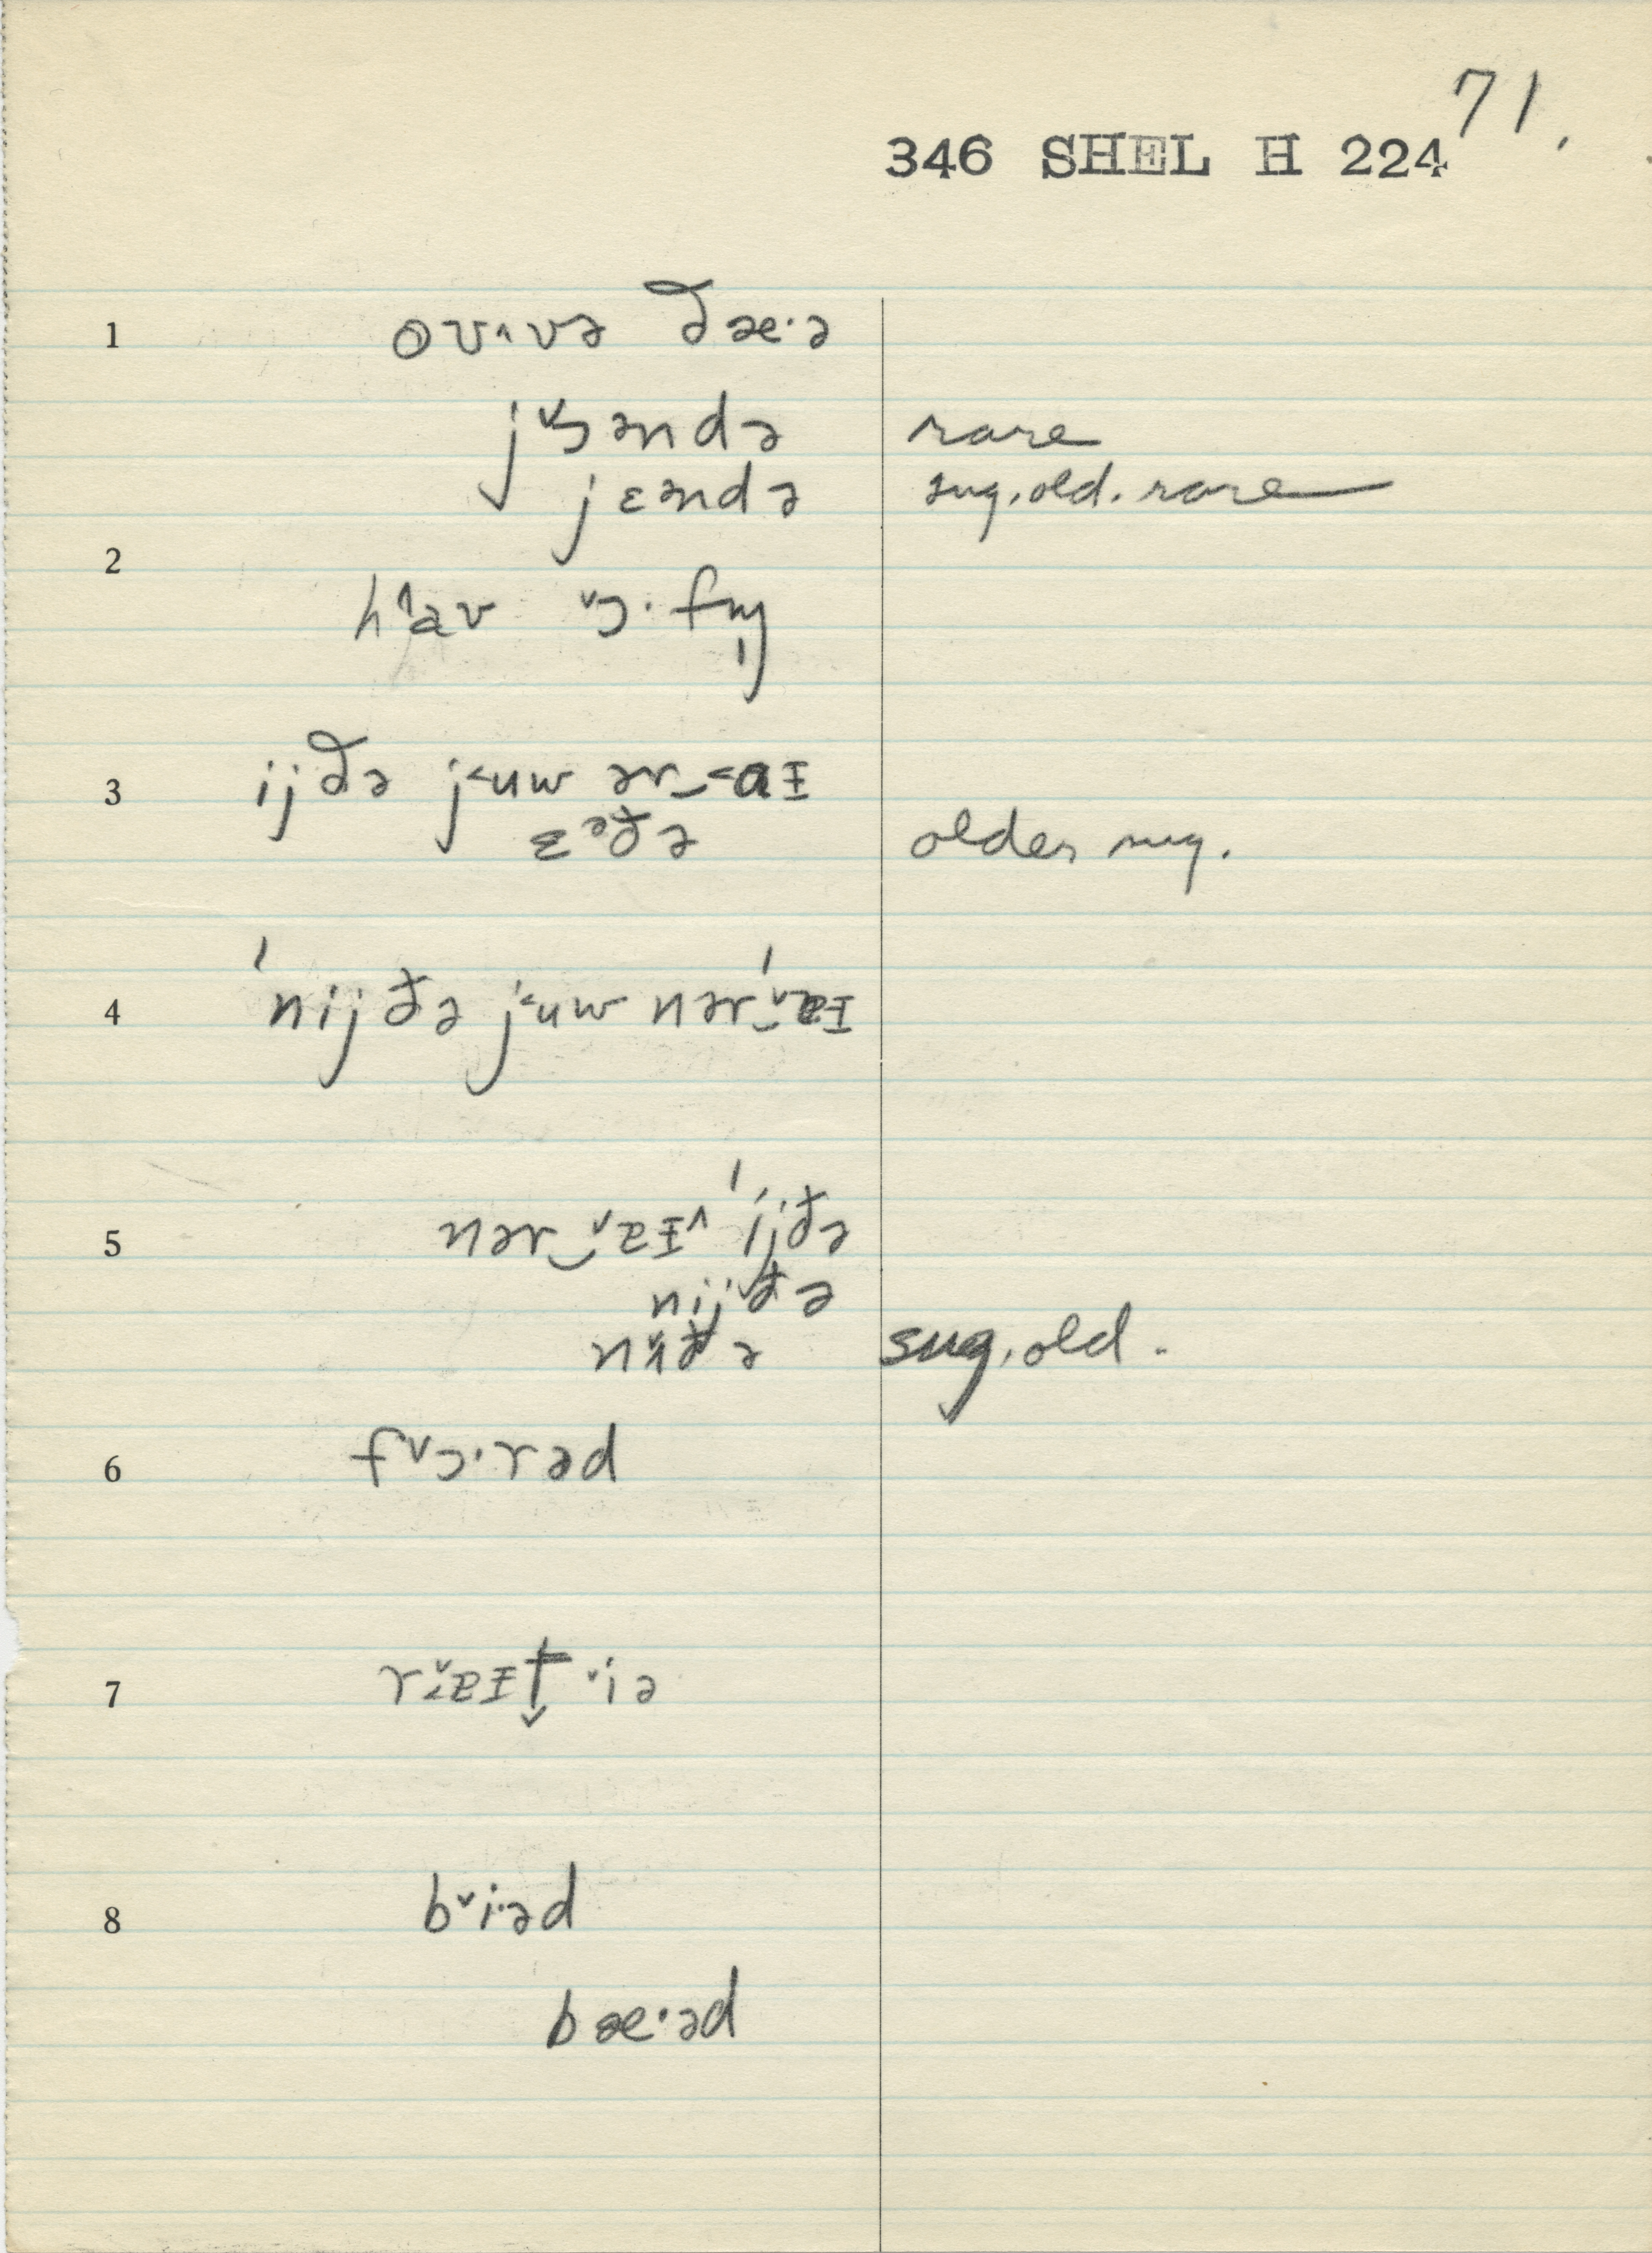 71.
346 SHEL H 224
1 oʊ˄və ðæ·ə
jɔ˅əndə rare
jɛəndə sug. old. rare
2
h˄aʊ ˅ɔ·fn̩
3 ijðə j˂uw ər‿˂aɪ
ɛᵊðə older sug.
4 ˈnijðə j˂uw nərˈ‿˅ɐɪ
5 nər‿˅ɐɪ˄ ˈijðə
nijðə
sug. old.
6 f˅ɔ·rəd
7
8 b˅i·əd
bæ·əd